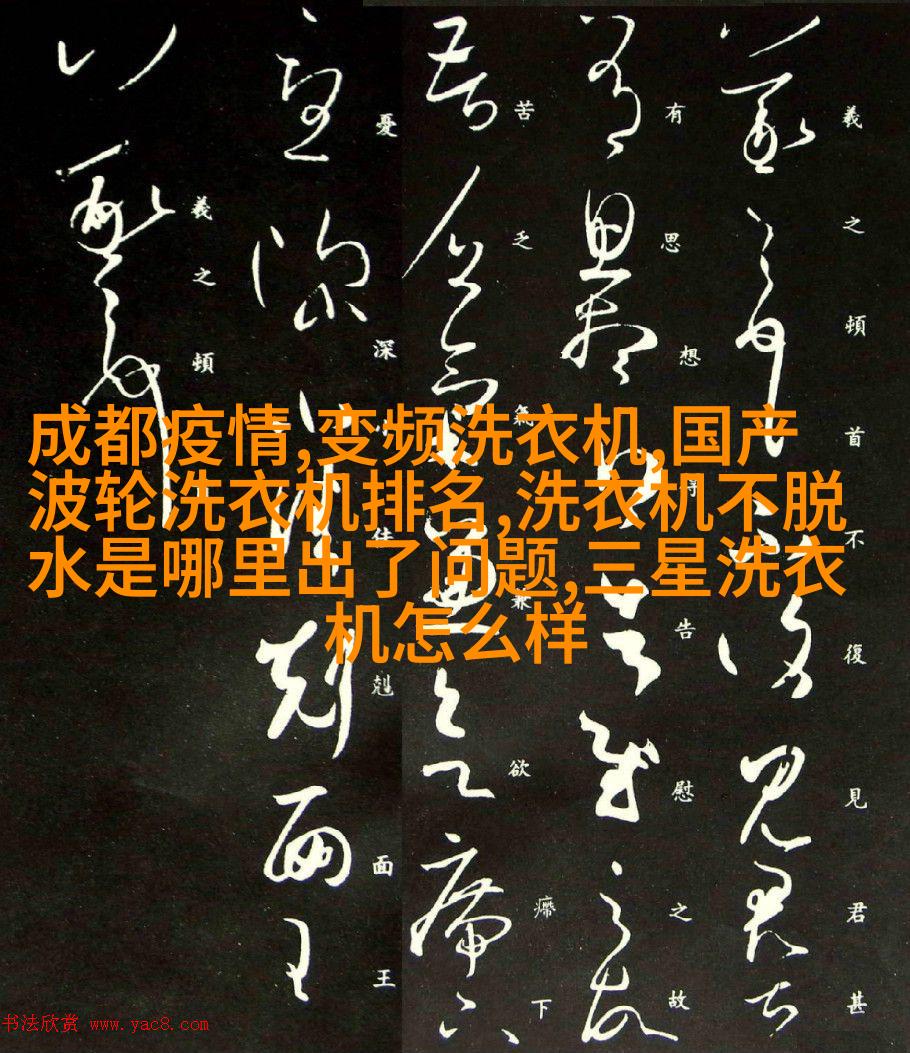 成都疫情,变频洗衣机,国产
波轮洗衣机排名,洗衣机不脱
水是哪里出了问题,三星洗衣
机怎么样
羲之頓首不復見君甚
有思想得告慰之故
苦乏氣兼欲㿃下
憂深佳剋面王
羲之頓
书法欣赏 www.yac8.com